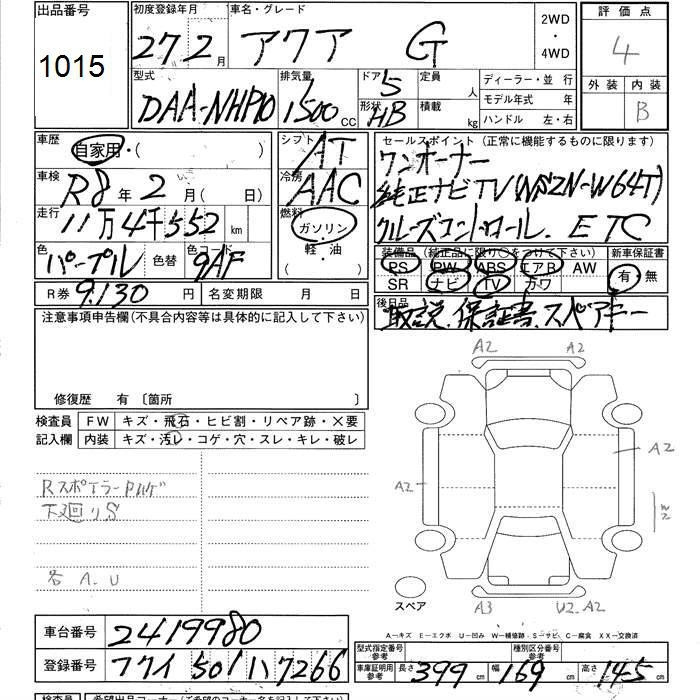 出品番号
1015
初度登録年月
27 2月
車名・グレード
アクア G
2WD
・
4WD
評価点
4
型式
DAA-NHP10
排気量
1500 CC
ドア 5
形状 HB
定員 人
積載 kg
ディーラー・並行
モデル年式 年
ハンドル 左・右
外装 内装
B
車歴
自家用・( )
シフト AT
セールスポイント(正常に機能するものに限ります)
ワンオーナー
純正ナビTV(NSZN-W64T)
クルーズコントロール. ETC
車検
R8年2月( 日)
冷房 AAC
走行
11万4千552km
燃料
ガソリン
・
軽・油
( )
色
パープル
色替
色コード
9AF
装備品(純正品に限り○をつけて下さい)
PS PW ABS エアB AW
SR ナビ TV カワ
新車保証書
有・無
R券 9.130円
名変期限 月 日
後日品
取説.保証書.スペアキー
注意事項申告欄(不具合内容等は具体的に記入して下さい)
修復歴 有〔箇所 〕
検査員
記入欄
FW キズ・飛石・ヒビ割・リペア跡・X要
内装 キズ・汚レ・コゲ・穴・スレ・キレ・破レ
下廻りS
各 A.U
A2 A2
A2
A2
A3 U2.A2
スペア
A…キズ E…エクボ U…凹み W…補修跡 S…サビ C…腐食 XX…交換済
車台番号 2419980
登録番号 フクイ 501 ハ 7266
型式指定番号
参考
種別区分番号
参考
車庫証明用
参考
長さ 399cm 幅 169cm 高さ 145cm
検査員